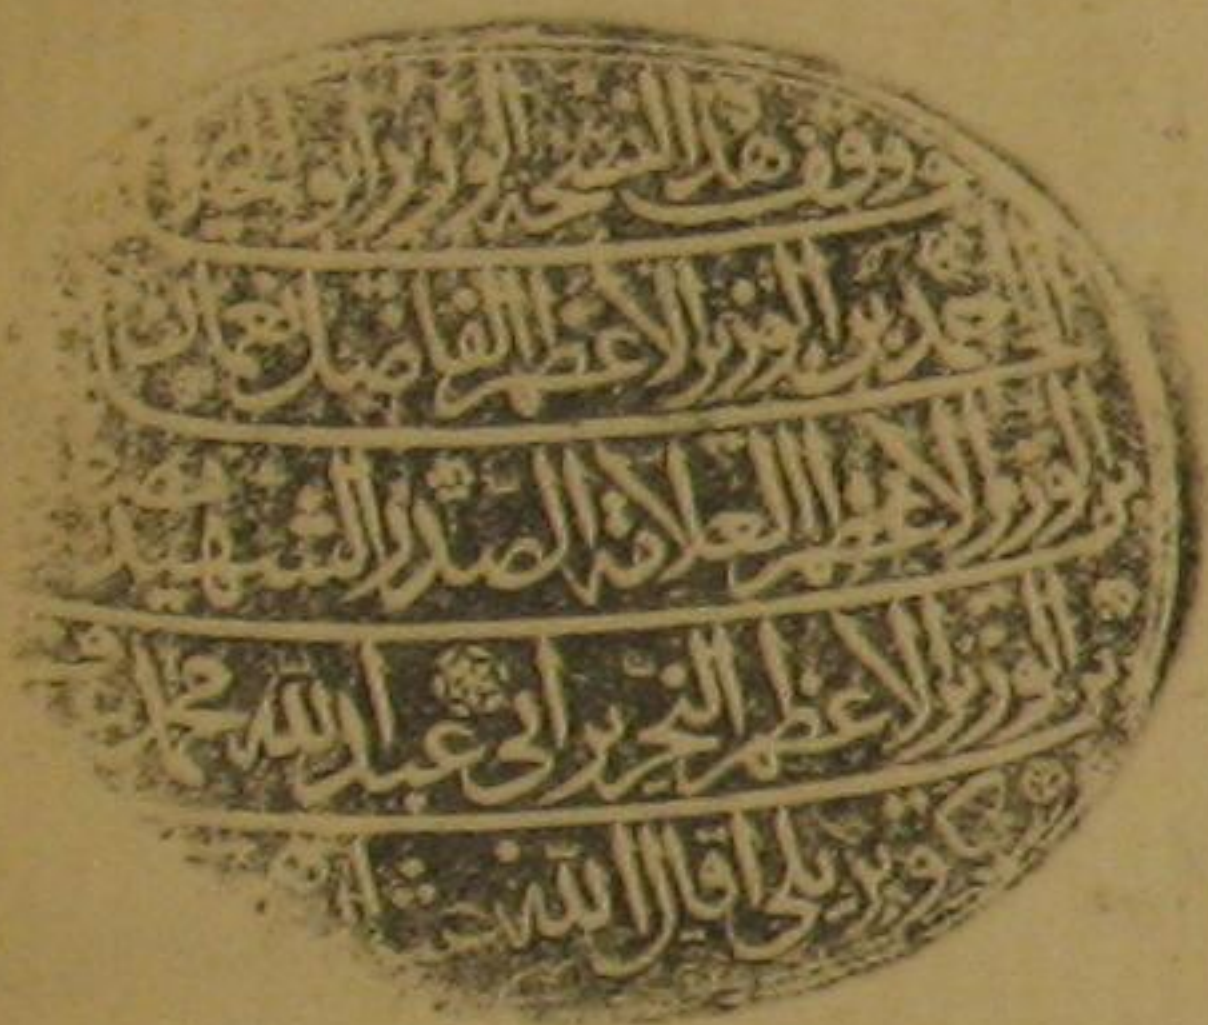 وقف هذه النسخة الوزير ابو الخير
الحاج احمد بن الوزير الاعظم الفاضل نعمان
بن الوزير الاعظم العلامة الصدر الشهيد مصطفى
بن الوزير الاعظم النحرير ابي عبد الله محمد عرف
بكوپريلي اقال الله عثارهما